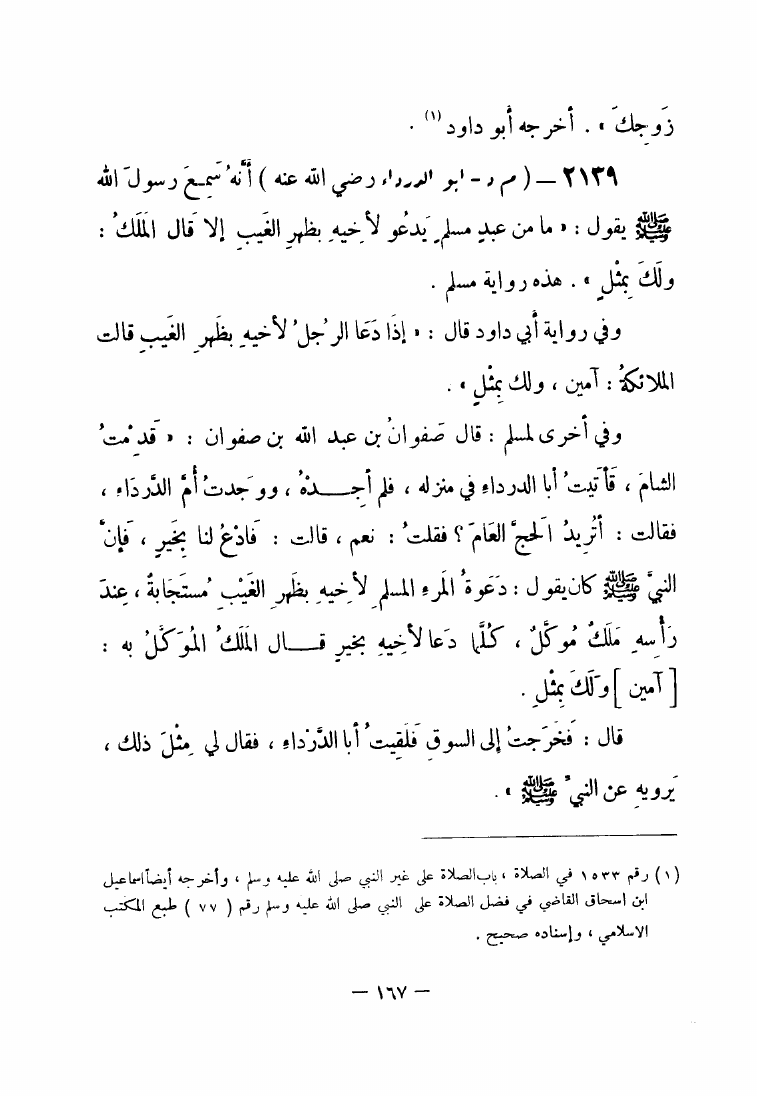 زَوجِكَ » . أخرجه أبو داود (١) .
٢١٣٩ – ( م د - أبو الدرداء رضي الله عنه ) أنَّهُ سَمِعَ رسولَ الله
ﷺ يقول : « ما من عبدٍ مسلمٍ يَدعُو لأخيهِ بظهرِ الغَيبِ إلا قال المَلَكُ :
ولَكَ بِمثْلٍ » . هذه رواية مسلم .
وفي رواية أبي داود قال : « إذَا دَعَا الرجُلُ لأخيهِ بظَهرِ الغَيبِ قالت
الملائكةُ : آمين ، ولك بِمثْلٍ » .
وفي أخرى لمسلم : قال صَفوانُ بن عبد الله بن صفوان : « قَدِمْتُ
الشامَ ، فَأَتَيتُ أبا الدرداءِ في منزله ، فلم أجِدْهُ ، ووَجدتُ أُمَّ الدَّردَاءِ ،
فقالت : أتُرِيدُ الحجَّ العَامَ ؟ فقلتُ : نعم ، قالت : فَادْعُ لنا بِخَيرٍ ، فَإنَّ
النبيَّ ﷺ كان يقول : دَعوةُ المَرءِ المسلمِ لأخيهِ بظَهرِ الغَيْبِ مُستَجَابةٌ ، عِندَ
رَأْسهِ مَلَكٌ مُوَكَّلٌ ، كُلَّما دَعا لأخِيهِ بخيرٍ قال المَلَكُ المُوَكَّلُ به :
[ آمين ] ولَكَ بِمثْلٍ .
قال : فَخَرَجتُ إلى السوقِ فَلَقِيتُ أبا الدَّرْداءِ ، فقال لي مِثْلَ ذلك ،
يَرويهِ عن النبيِّ ﷺ » .
(١) رقم ١٥٣٣ في الصلاة ، باب الصلاة على غير النبي صلى الله عليه وسلم ، وأخرجه أيضاً اسماعيل
ابن اسحاق القاضي في فضل الصلاة على النبي صلى الله عليه وسلم رقم ( ٧٧ ) طبع المكتب
الاسلامي ، وإسناده صحيح .
– ١٦٧ –